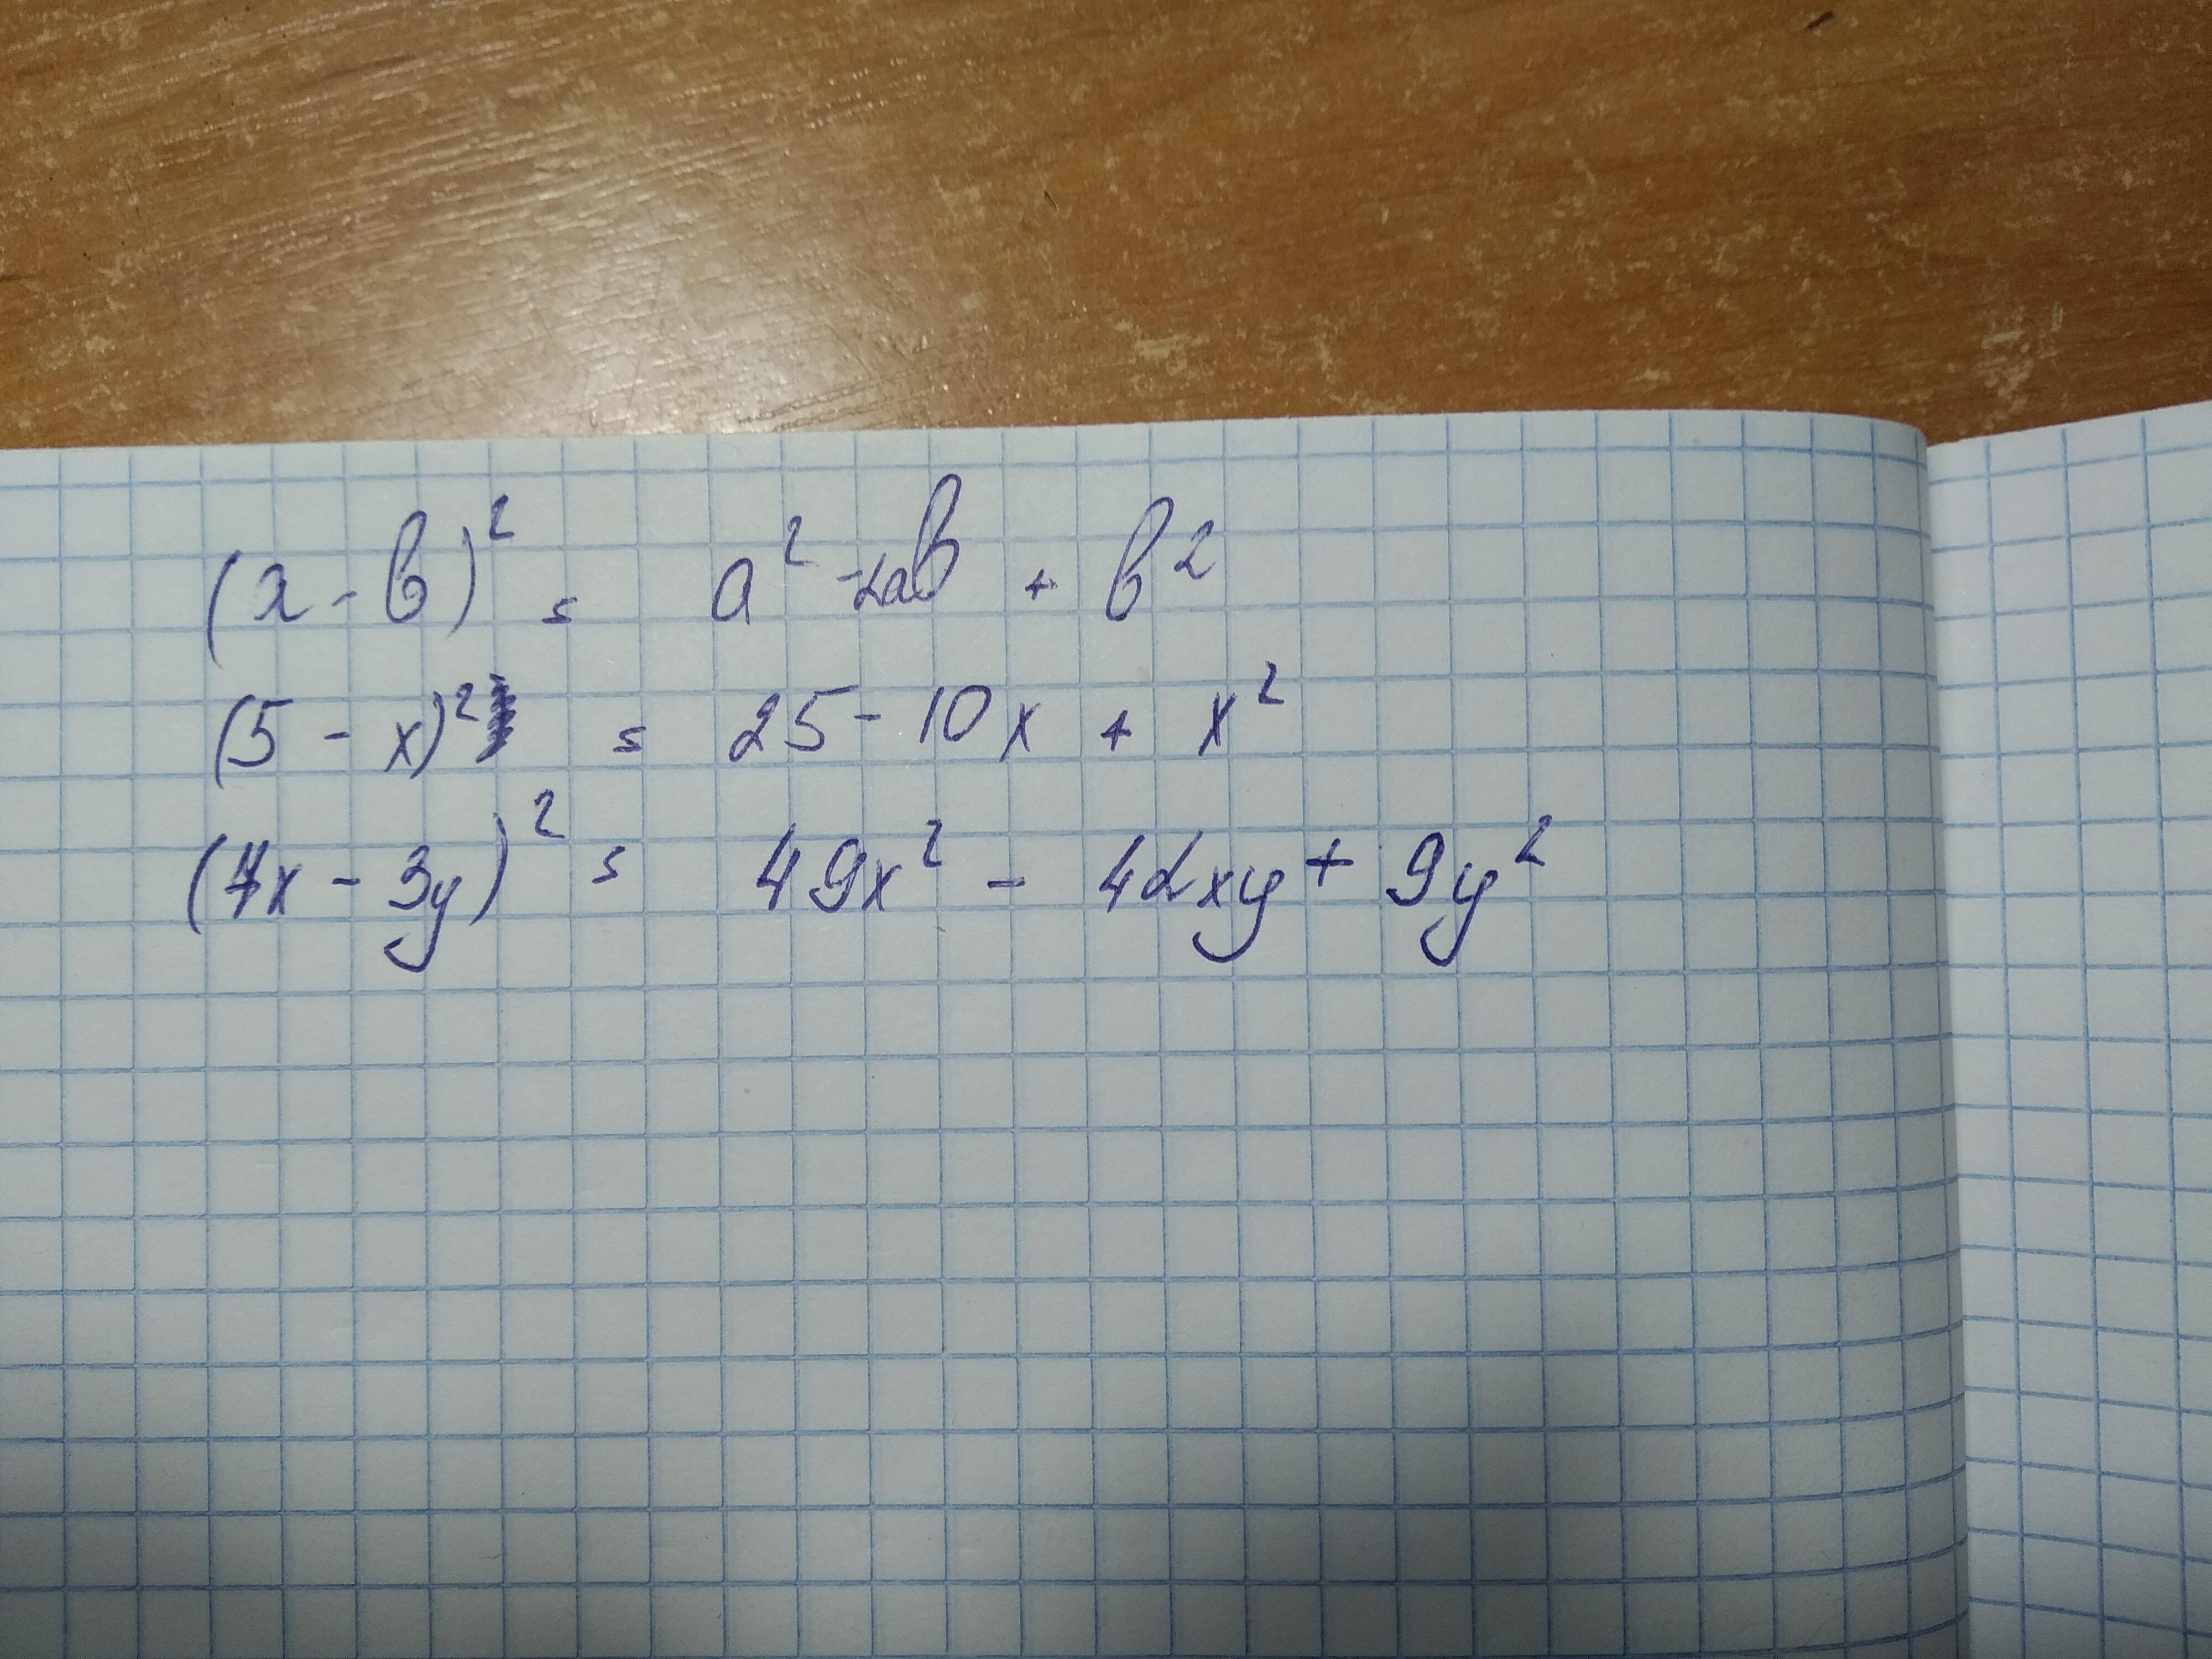 (x - b)² = a² - 2ab + b²
(5 - x)² = 25 - 10x + x²
(7x - 3y)² = 49x² - 42xy + 9y²